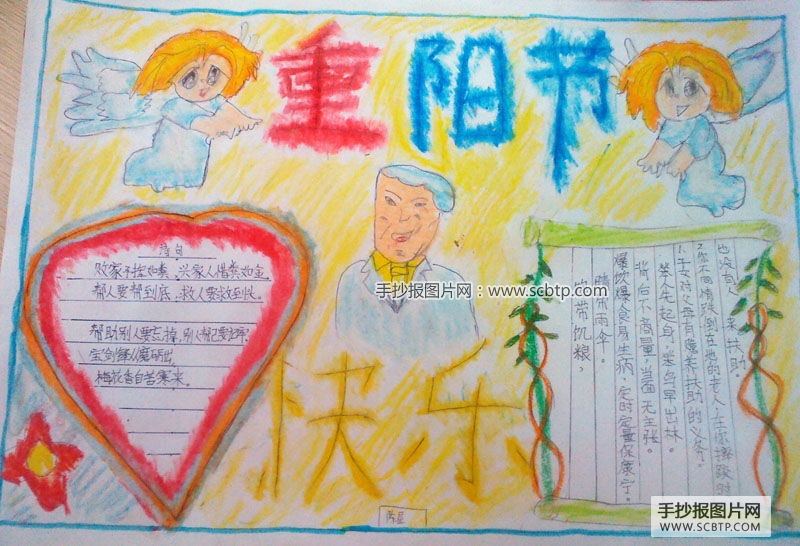 重阳节
诗句
败家子挥金如土,兴家人惜粪如金。
帮人要帮到底,救人要救到头。
帮助别人要忘掉,别人帮己要记牢
宝剑锋从磨砺出,
梅花香自苦寒来。
手抄报图片网:www.scbtp.com
快乐
也没有人来扶助。
2.您不同情跌倒在地的老人,在您摔跤时
1.子女对父母有赡养扶助的义务。
笨人先起身,笨鸟早出林。
背后不商量,当面无主张。
爆饮爆食易生病,定时定量保康宁。
晴带雨伞。
饱带饥粮,
手抄报图片网
WWW.SCBTP.COM